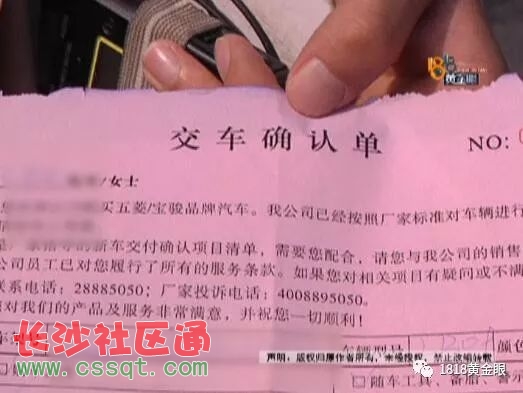 黄金眼
交车确认单
NO:
/女士
买五菱/宝骏品牌汽车。我公司已经按照厂家标准对车辆进行
的新车交付确认项目清单，需要您配合，请您与我公司的销售
公司员工已对您履行了所有的服务条款。如果您对相关项目有疑问或不满
联系电话：28885050；厂家投诉电话：4008895050。
对我们的产品及服务非常满意，并祝您一切顺利！
长沙社区通
www.cssqt.com
车辆型号
颜色
声明：版权归原作者所有，未经授权，禁止改编转载
随车工具、备胎、警示
1818黄金眼